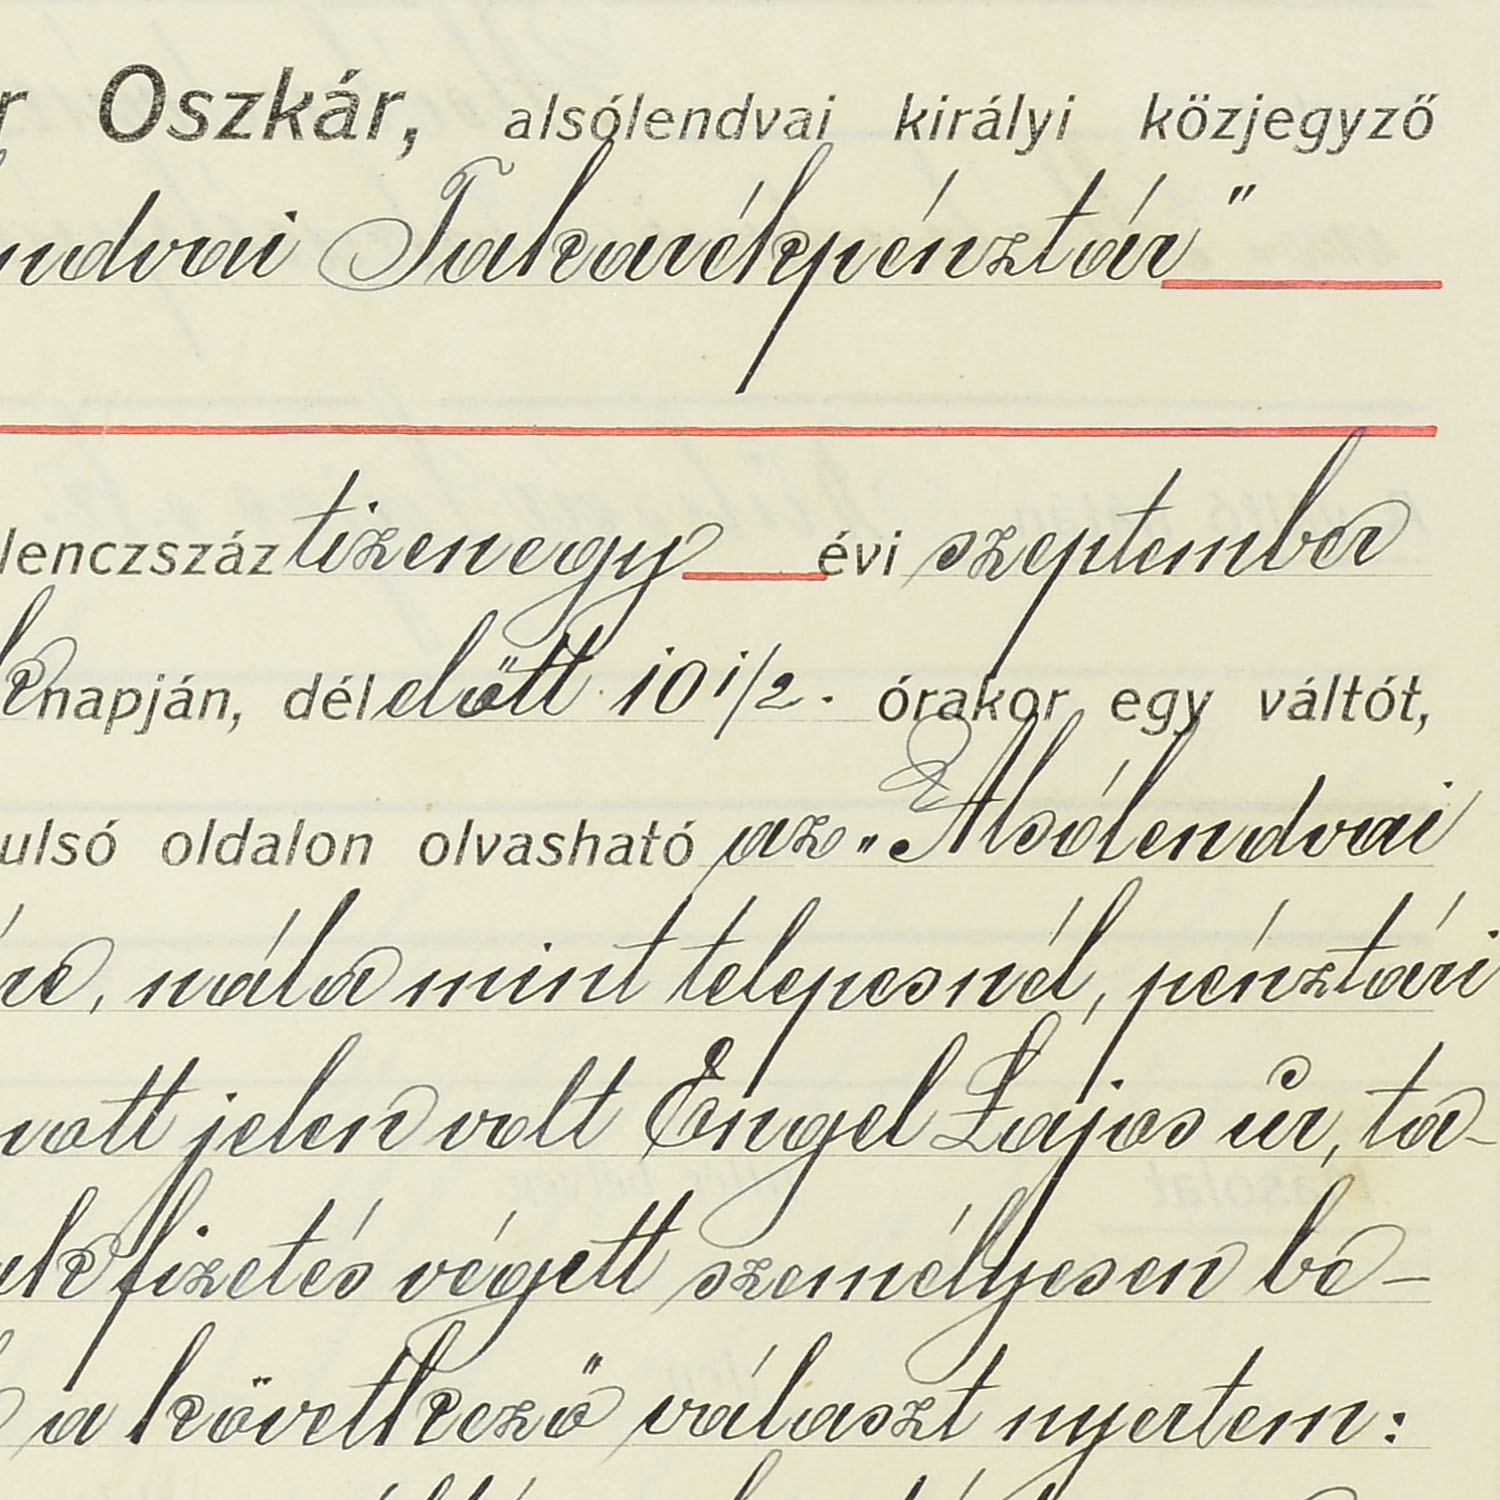 r Oszkár, alsólendvai királyi közjegyző
ndvai Takarékpénztár"
lenczszáz tizenegy évi szeptember
napján, délelőtt 10 1/2. órakor egy váltót,
ulsó oldalon olvasható az „Alsólendvai
re, nála mint telepesnél, pénztári
nott jelen volt Engel Lajos úr, ta-
ek fizetés végett személyesen be-
a következő választ nyertem: